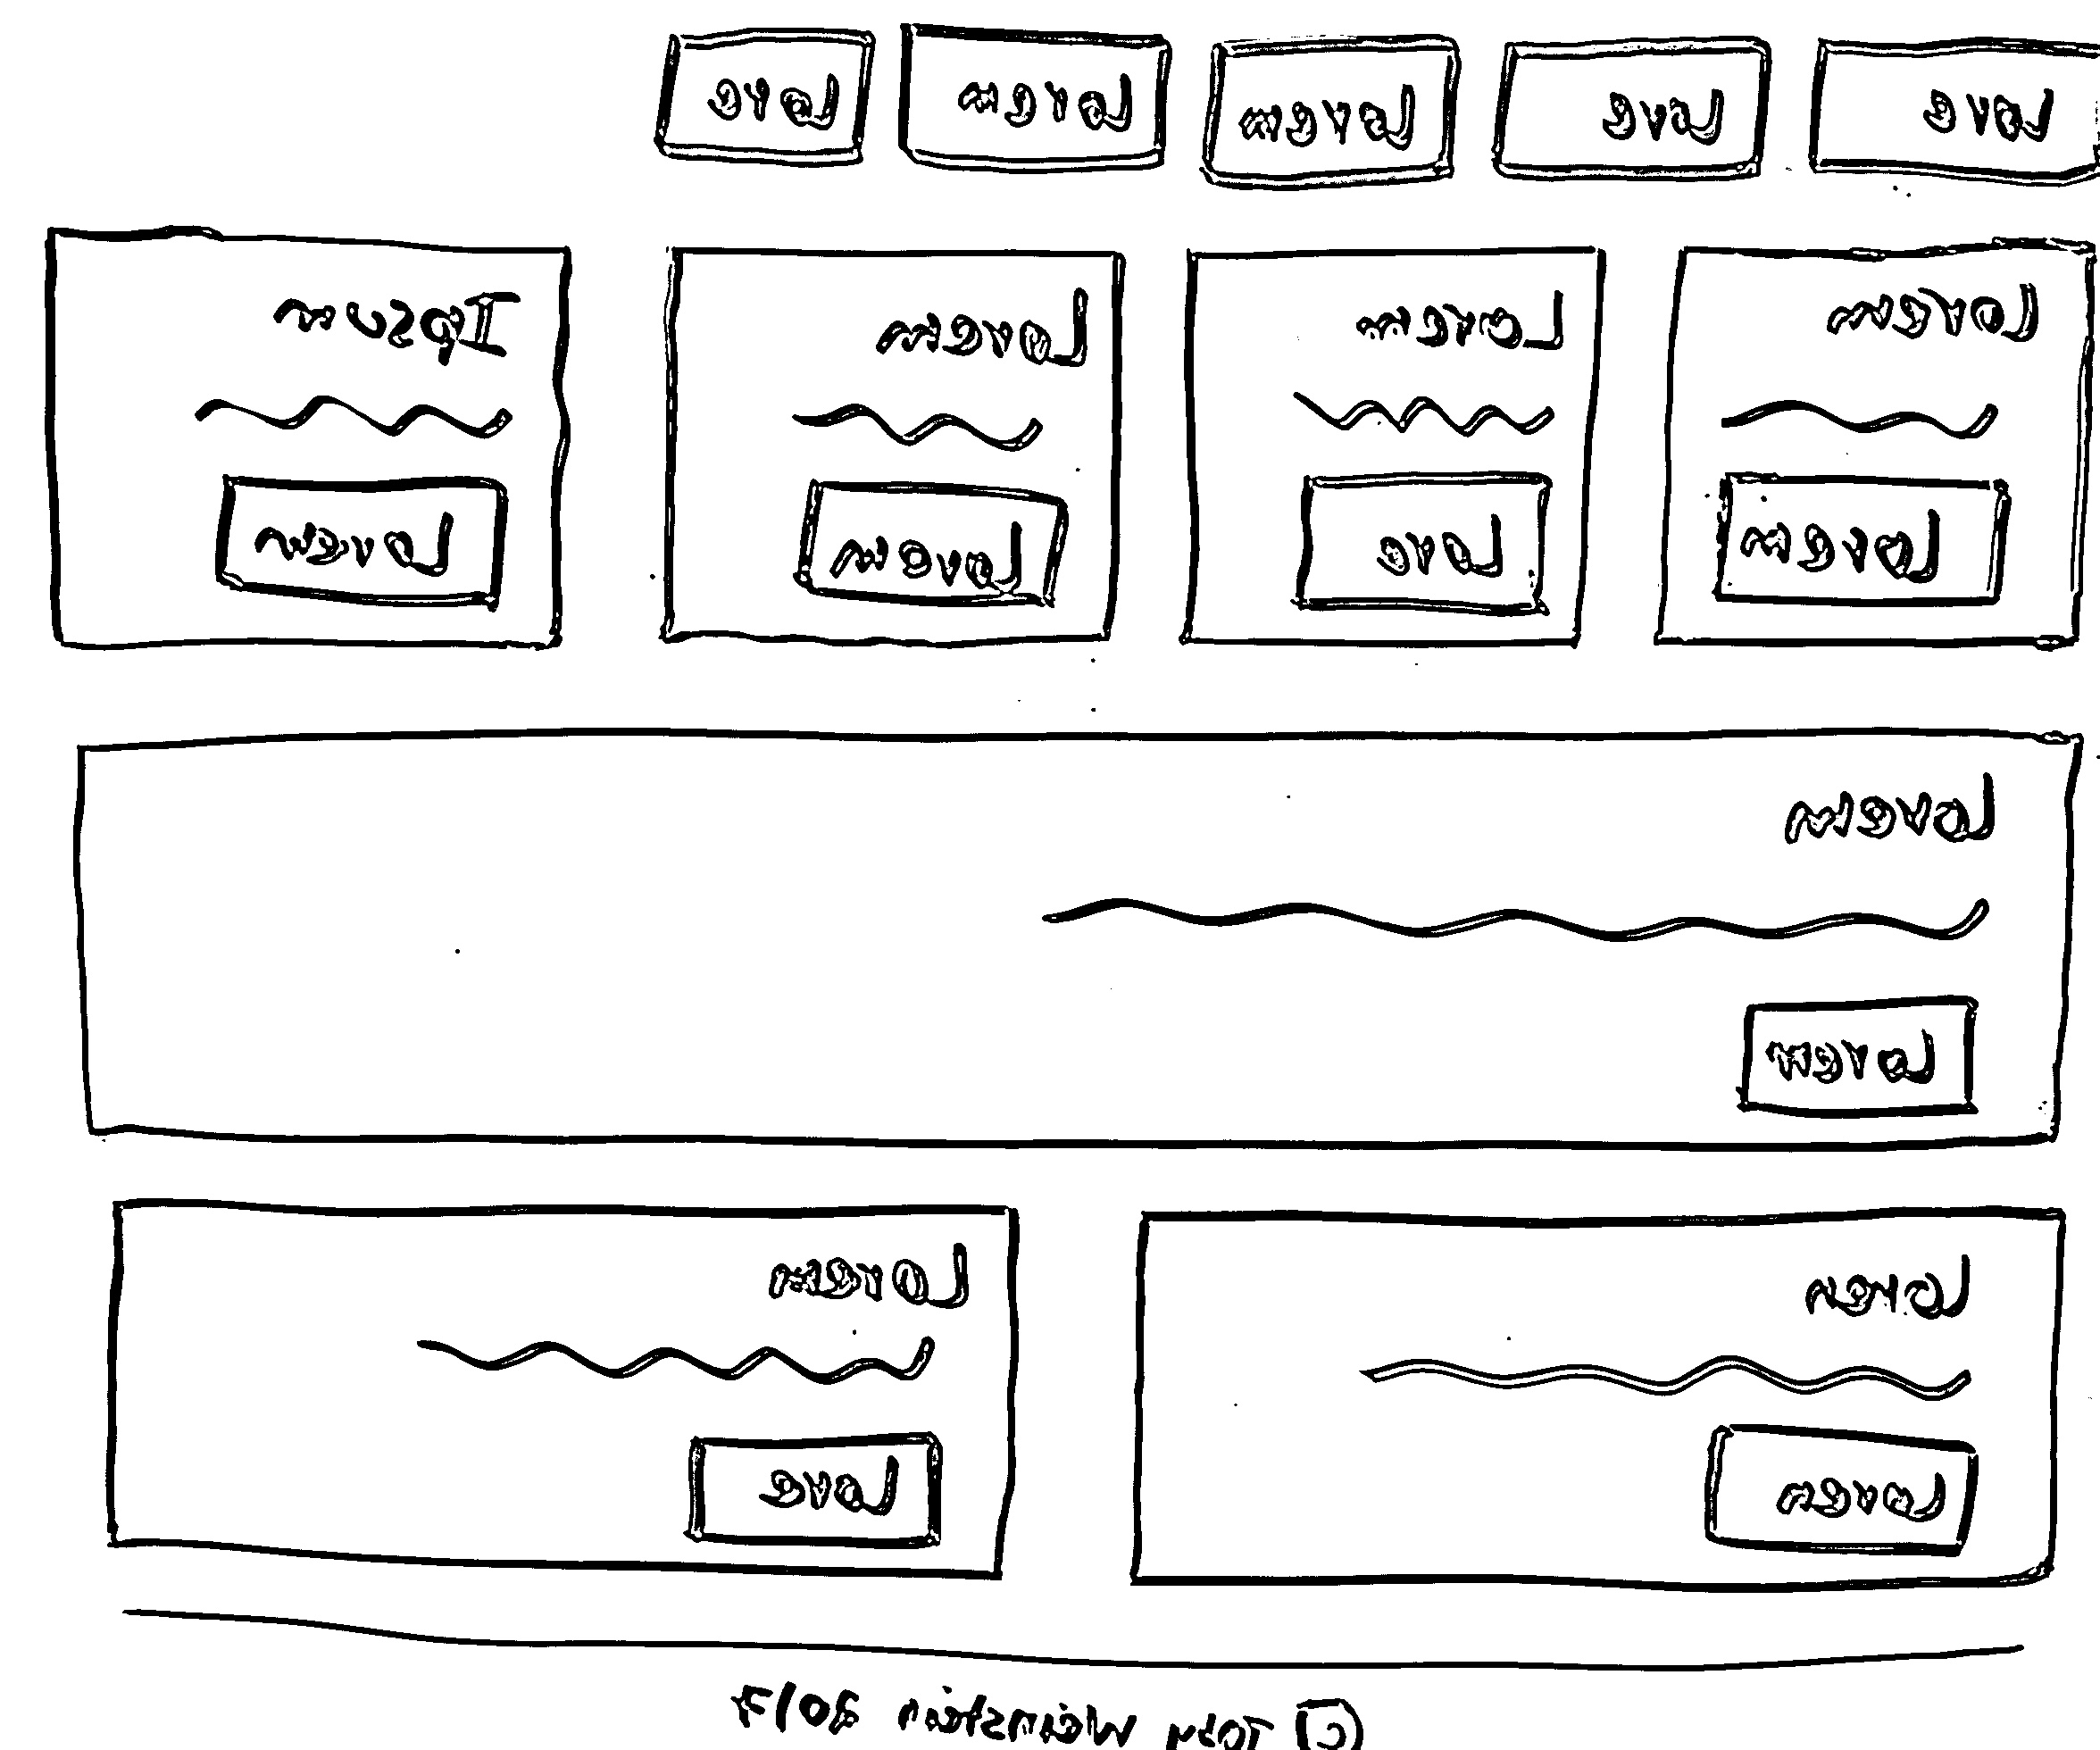 Lore Lore Lorem Lorem Lore
Lorem Lorem Lorem Ipsum
Lorem Lore Lorem Lorem
Lorem
Lorem
Loren Lorem
Loren Lore
© Toby Weinstein 2017